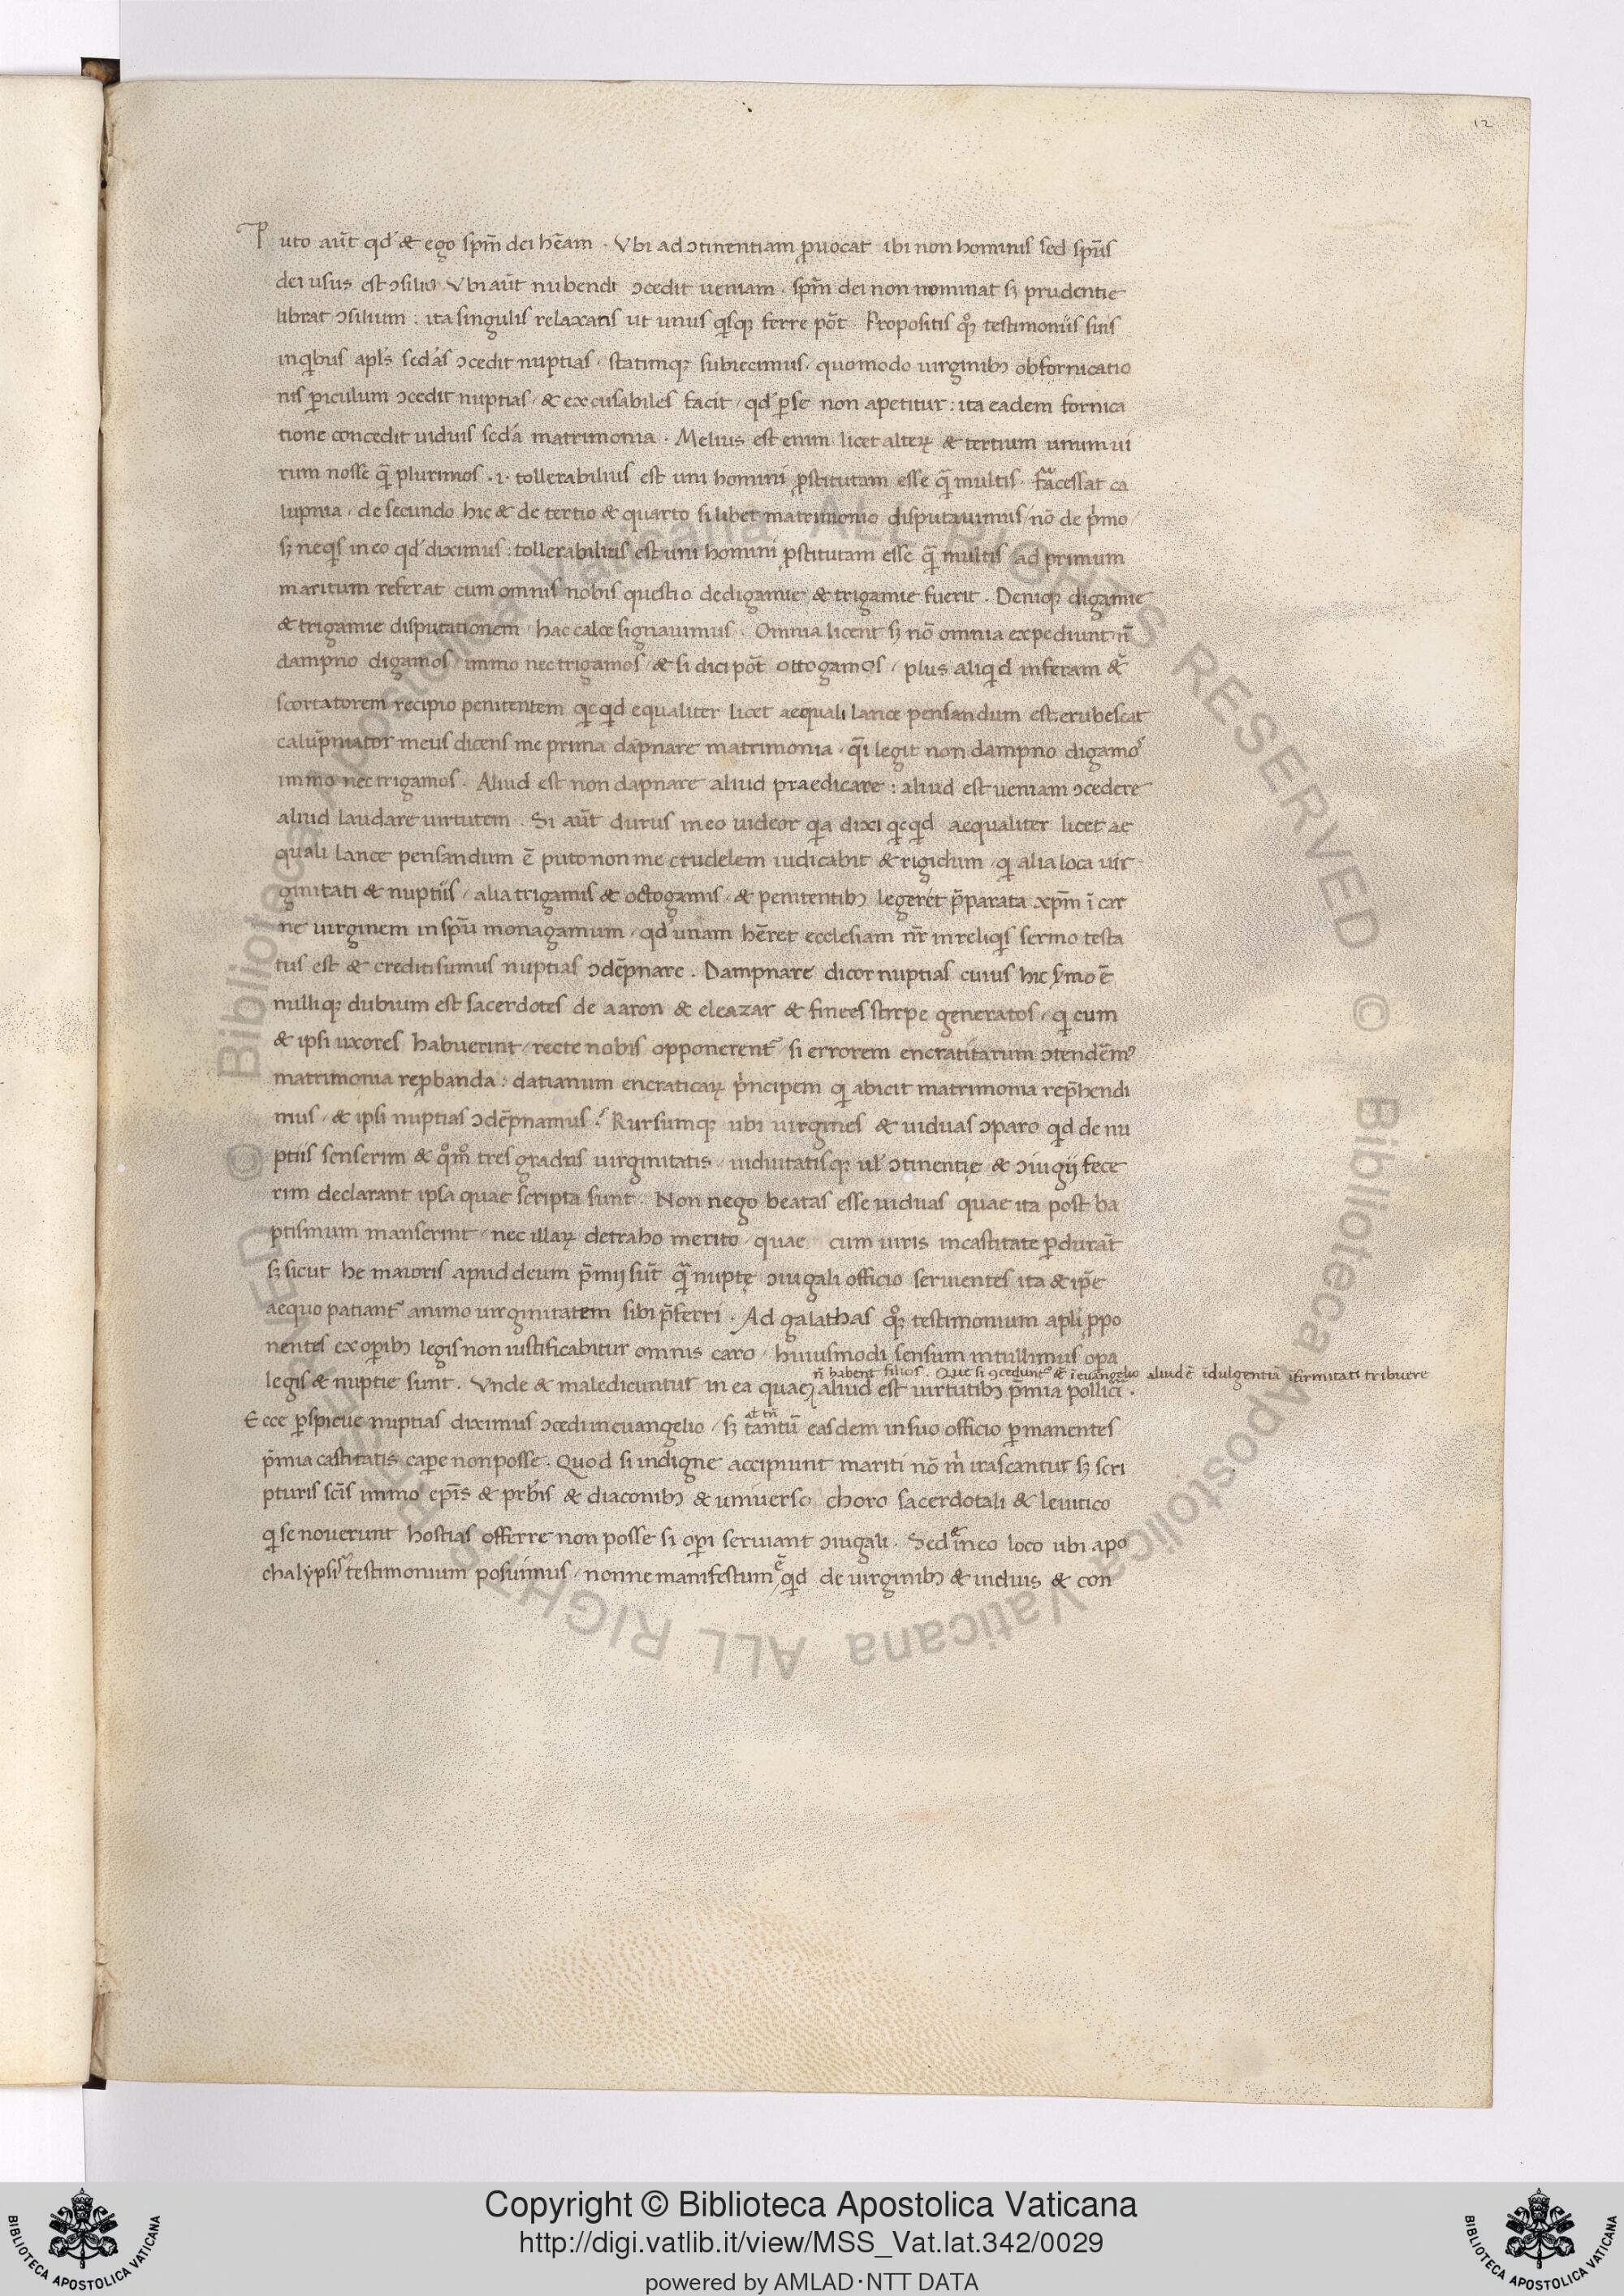 12
Puto aut̄ qd' & ego sp̄m dei hēam . Vbi ad ↄtinentiam ꝓuocat ibi non hominis sed sp̄us
dei usus est ↄsilio Vbi aut̄ nubendi ↄcedit ueniam . sp̄m dei non nominat sꝫ prudentie
librat ↄsilium . ita singulis relaxatis ut unus qi̓sqꝫ ferre pōt . Propositis qͦꝫ testimoniis suis
in qi̓bus apl's secdas ↄcedit nuptias . statimqꝫ subiecimus . quomodo uirginibꝫ ob fornicatio
nis ꝑiculum ↄcedit nuptias / & excusabiles facit / qd' ꝑ se non apetitur : ita eadem fornica
tione concedit uiduis secda matrimonia . Melius est enim licet alteꝝ & tertium unum ui
rum nosse qᷓ plurimos . i . tollerabilius est uni homini ꝓstitutam esse qᷓ multis . facessat ca
lupnia / de secundo hic & de tertio & quarto si libet matrimonio disputauimus / nō de pi̓mo /
sꝫ neqi̓s in eo qd' diximus : tollerabilius est uni homini ꝓstitutam esse qᷓ multis / ad primum
maritum referat cum omnis nobis questio de digamie & trigamie fuerit . Deniqꝫ digamie
& trigamie disputationem hac calce signauimus . Omnia licent sꝫ nō omnia expediunt n̄
dampno digamos / immo nec trigamos / & si dici pōt ottogamos / plus aliqi̓d inferam &
scortatorem recipio penitentem qi̓cqi̓d equaliter licet aequali lance pensandum est erubescat
calūpniator meus dicens me prima dāpnare matrimonia . qn̄ legit non dampno digamos
immo nec trigamos . Aliud est non dāpnare aliud praedicare : aliud est ueniam ↄcedere
aliud laudare uirtutem . Si aut̄ durus in eo uideor qi̓a dixi qi̓cqi̓d aequaliter licet ae
quali lance pensandum ē puto non me crudelem iudicabit & rigidum / qi̓ alia loca uir
ginitati & nuptiis / alia trigamis & octogamis . & penitentibꝫ legeret p̄parata xp̄m ī car
ne uirginem in sp̄u monagamum / qd' unam hēret ecclesiam nr̄ in reliqi̓s sermo testa
tus est & crediti sumus nuptias ↄdēpnare . Dampnare dicor nuptias cuius hic s̓mo ē
nulliqꝫ dubium est sacerdotes de aaron & eleazar & finees stirpe generatos / qi̓ cum
& ipsi uxores habuerint / recte nobis opponerent᷑ si errorem encratitarum ↄtendēm᷑
matrimonia reꝓbanda : datianum encraticaꝝ pi̓ncipem qi̓ abicit matrimonia rep̄hendi
mus / & ipsi nuptias ↄdēpnamus ? Rursumqꝫ ubi uirgines & uiduas ↄparo qi̓d de nu
ptiis senserim & qͦm̊ tres gradus uirginitatis / uiduitatisqꝫ ul' ↄtinentię & ↄiugij fece
rim declarant ipsa quae scripta sunt . Non nego beatas esse uiduas quae ita post ba
ptismum manserint / nec illaꝝ detraho merito / quae cum uiris in castitate ꝑdurāt
sꝫ sicut he maioris apud deum p̄mij sūt qᷓ nuptę ↄiugali officio seruientes ita & ip̄e
aequo patiant᷑ animo uirginitatem sibi p̄ferri . Ad galathas qͦꝫ testimonium apl'i ꝓpo
nentes ex oꝑibꝫ legis non iustificabitur omnis caro / huiusmodi sensum intullimus oꝑa
n̄ habent filios . Que si ↄcedunt᷑ & ī euangelio aliud ē īdulgentiā īfirmitati tribuere
legis & nuptie sunt . Vnde & maledicuntur in ea quae aliud est uirtutibꝫ p̄mia polliceri .
Ecce ꝑspicue nuptias diximus ↄcedi in euangelio / sꝫ tantū eas dem in suo officio ꝑmanentes
al' tn̄
p̄mia castitatis caꝑe non posse . Quod si indigne accipiunt mariti nō mi̓ irascantur sꝫ scri
pturis scīs immo ep̄is & prb'is & diaconibꝫ & uniuerso choro sacerdotali & leuitico
qi̓ se nouerunt hostias offerre non posse si oꝑi seruiant ↄiugali . Sed & in eo loco ubi apo
chalypsis testimonium posuimus / nonne manifestum ē qi̓d de uirginibꝫ & uiduis & con
© Biblioteca Apostolica Vaticana ALL RIGHTS RESERVED
© Biblioteca Apostolica Vaticana ALL RIGHTS RESERVED
BIBLIOTECA APOSTOLICA VATICANA
Copyright © Biblioteca Apostolica Vaticana
http://digi.vatlib.it/view/MSS_Vat.lat.342/0029
powered by AMLAD·NTT DATA
BIBLIOTECA APOSTOLICA VATICANA